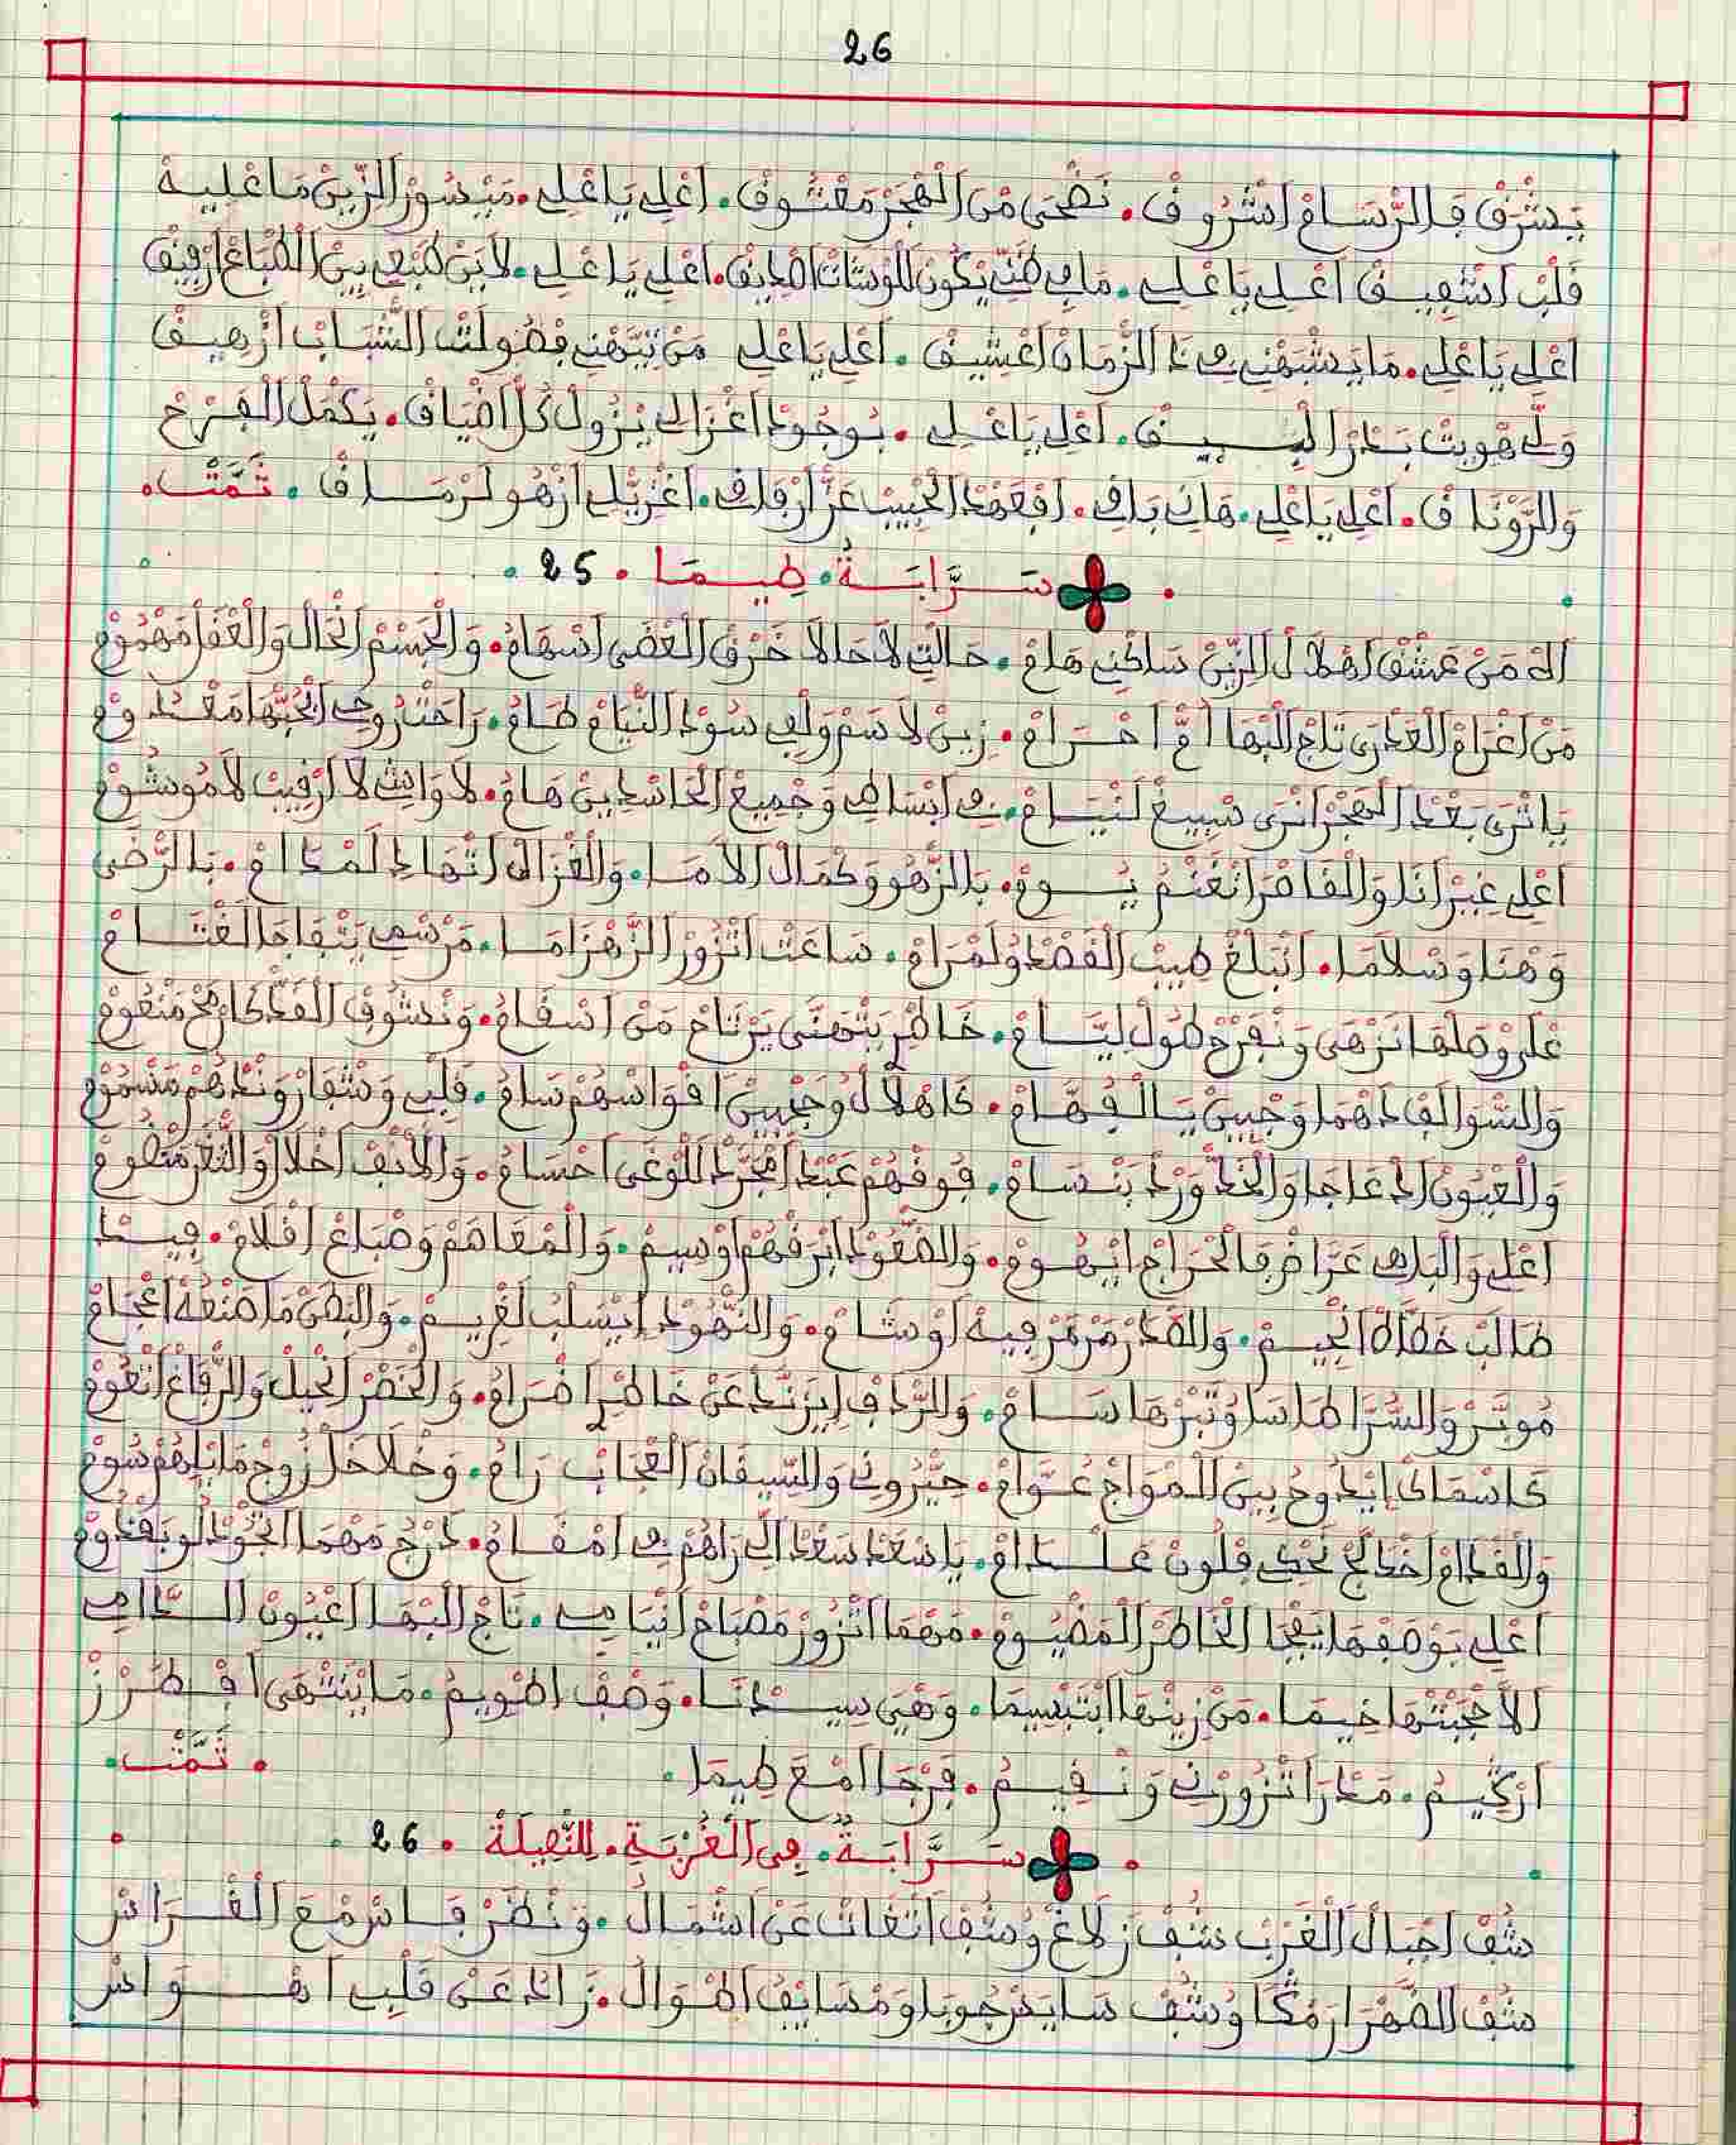 26
يشرق فالرسام اشروق. نضحى من الهجر معتوق. اعلي ياعلي. ميسور الزين ما عليه
قلب اشفيق اعلي ياعلي. ما في ظني يكون للوشات اصديق. اعلي ياعلي. لاين طبعي بين الطباع ارقيق
اعلي ياعلي. ما يشبهني في ذا الزمان اعشيق. اعلي ياعلي من تيهني بصولت الشباب ازهيق
ولي هويت بدر البيق. اعلي ياعلي. بوجود اغزالي يزول كل اضياق. يكمل الفرح
والرونا ق. اعلي ياعلي. هاني باقي. افعهد الحبيب عز ارفاقي. اغزيل ازهو لرماق. تمت.
سرابة. طيما. 25
اله من عشق اهلال الزين ساكني هام. حالتي لا حالا خرق العضى اسهام. والجسم انحال والعقل مهموم
من اغرام العذرى تاج البها ام احرام. زين لاسم ولفي سود النيام طام. راحت روحي الحبها مغدوم
يا ترى بعد الهجر انرى سبيغ لنيام. في ابساطي وجميع الحاسدين هام. لا واشي لا ارقيب لا موشوم
اعلي غير انا والقاصرا نغنم يوم. بالزهو وكمال الاما. والغزال انهاد لمدام. بالرضى
وهنا وسلاما. انبلغ طيب القصد ولمرام. ساعت اتزور الزهزاما. مرسمي يتفاجا لغتام
علر وصلها نزهى ونفرح طول ليام. خاطر يتهنى يرتاح من اسقام. ونشوف القد كا رمح منعوم
والسوالف دهما وجبين يا لفهام. كاهلال وحجبين اقواسهم سام. قلبي وشفار ونداهم مسموم
والعيون ادعاجا والخد ورد ينسام. فوقهم عبد امجرد للوغى احسام. والانف اخلال والثغر منضوم
اعلي والبلى عراض فالحراج ايهوم. والضعود ابرقهم اوسيم. والمعاصم وصباغ اقلام. فيد
طالب خطاط انجيم. والصدر مرمر فيه اوشام. والنهود ايسلب لغريم. والبطن ما صنعه اعجام
موبر والسرا طاسا وتبرها سام. والرداف ايزند عن خاطر اضرام. والخصر انحيل والرفاغ انعوم
كاسماك ايدوح بين المواج عوام. حيروني والسيقان العجاب رام. وخلاخل زوج ما ابلهم سوم
والقدام اخدلج تحكي فلون عـندام. يا سعد سعد الي راهم في امقام. درج مهما الجود لو يفدوم
اعلي بوصفها يفجا الخاطر المضيوم. مهما اتزور مصباح انيامي. تاج البها اعيون الدامي
الاجبتها خيما. من زينها ابتبسيما. وهي سيدنا. وصف اطويم. ما ينتهى افطرز
ارڭيم. مدرا تزورني ونقيم. فرجا امع طيما.
تمت.
سرابة. في الغربة. للثقيلة. 26
شف اجبال الغرب شف زلاغ وشف اتغات عن اشمال. ونظر فاس مع القراس
شف الضهر ارمڭا وشف سايس رجوبا ومسايف اطوال. زائد عن قلبي اهـواس